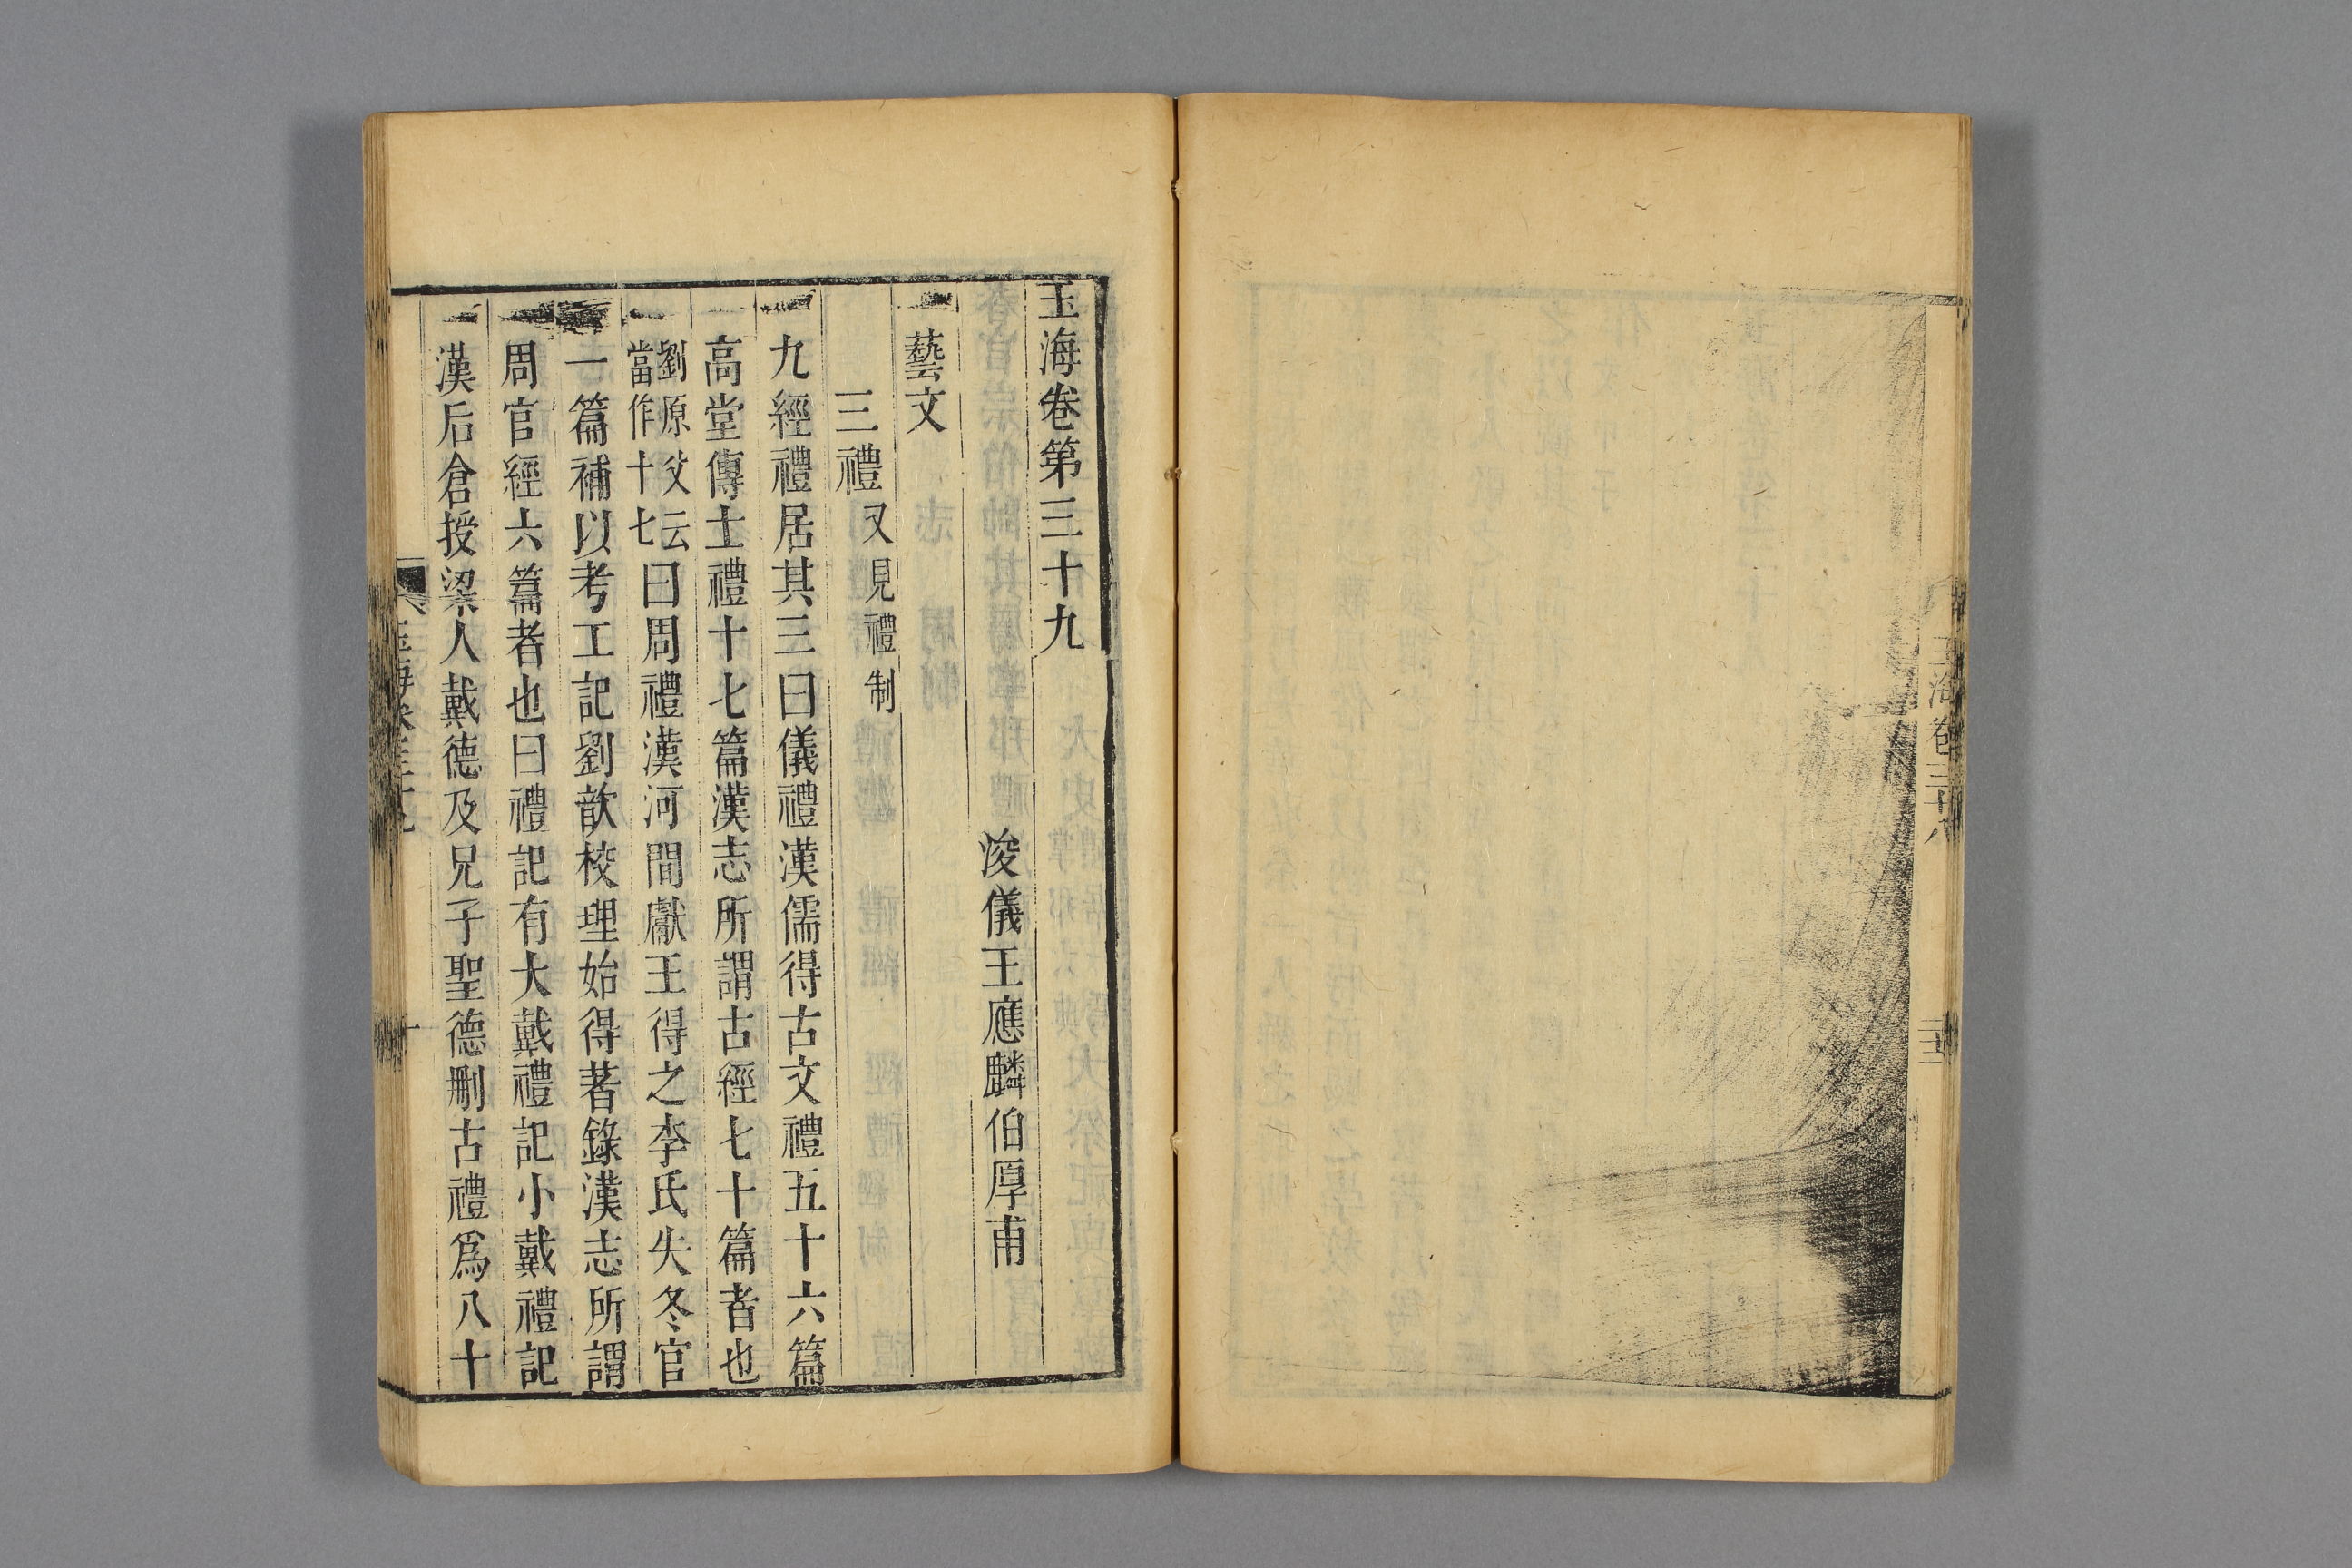 玉海卷三十八
玉海卷第三十九
浚儀王應麟伯厚甫
藝文
三禮又見禮制
九經禮居其三曰儀禮漢儒得古文禮五十六篇
高堂傳士禮十七篇漢志所謂古經七十篇者也
劉原父云
當作十七
曰周禮漢河間獻王得之李氏失冬官
一篇補以考工記劉歆校理始得著錄漢志所謂
周官經六篇者也曰禮記有大戴禮記小戴禮記
漢后倉授梁人戴德及兄子聖德刪古禮爲八十
玉海卷三十九